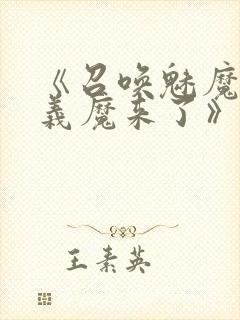 《召唤魅魔
义魔来了》
王素英